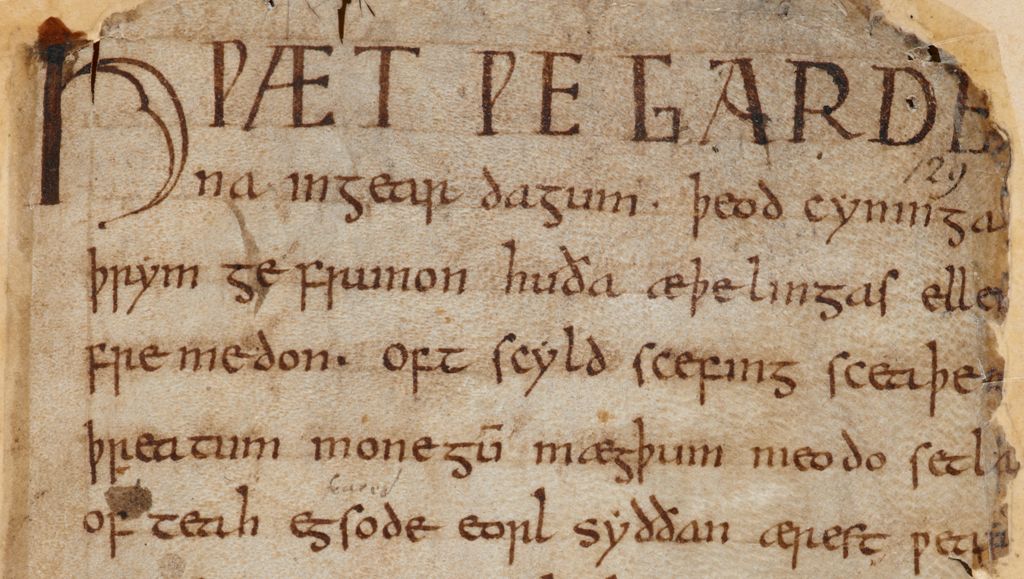 HǷÆT ǷE GARDE
na ingear dagum. þeod cyninga
þrym ge frunon huða æþelingas elle
fre medon. oft scyld scefing sceaþe
þreatum monegū mægþum meodo setla
of teah egsode eorl syððan ærest ƿear
129